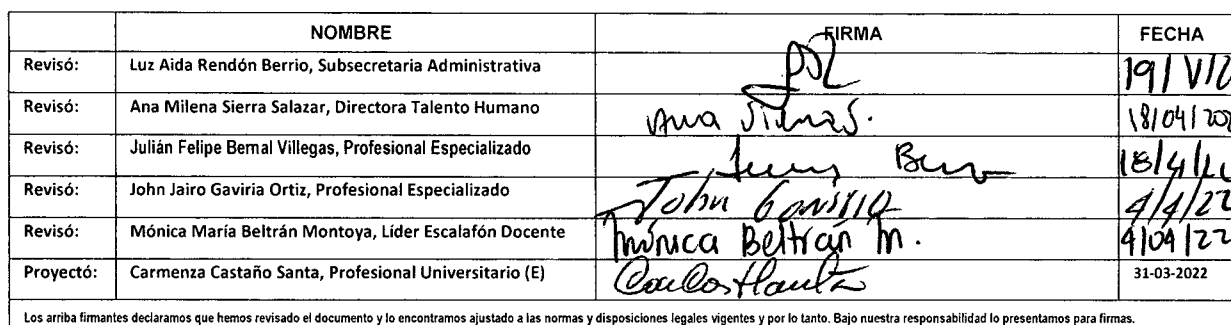 NOMBRE FIRMA FECHA
Revisó: Luz Aida Rendón Berrio, Subsecretaria Administrativa
Revisó: Ana Milena Sierra Salazar, Directora Talento Humano Ana 18/04/202
Revisó: Julián Felipe Bernal Villegas, Profesional Especializado
Revisó: John Jairo Gaviria Ortiz, Profesional Especializado John Gaviria 4/4/22
Revisó: Mónica María Beltrán Montoya, Líder Escalafón Docente Mónica Beltrán M. 4/04/22
Proyectó: Carmenza Castaño Santa, Profesional Universitario (E) 31-03-2022
Los arriba firmantes declaramos que hemos revisado el documento y lo encontramos ajustado a las normas y disposiciones legales vigentes y por lo tanto. Bajo nuestra responsabilidad lo presentamos para firmas.